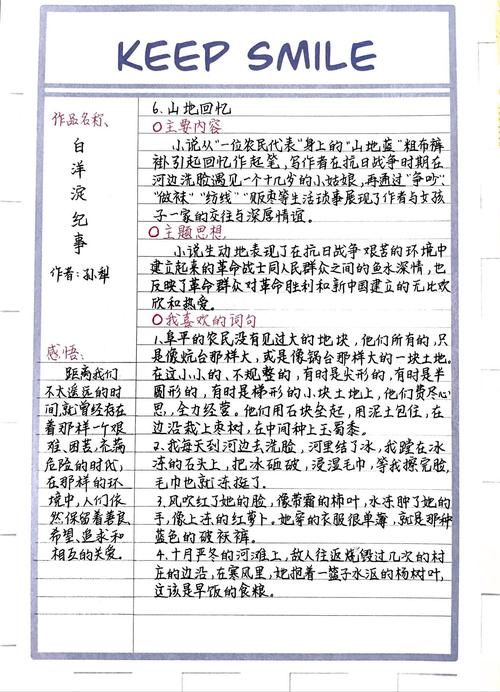 KEEP SMILE
作品名称:
白
洋
淀
纪
事
作者:孙犁
感悟:
距离我们
不太遥远的时
间,就曾经存在
着那样一个艰
难、困苦,充满
危险的时代,
在那样的环
境中,人们依
然保留着善良、
希望、追求和
相互的关爱。
6.山地回忆
○主要内容
小说从“一位农民代表”身上的“山地蓝”粗布裤
褂引起回忆作起笔,写作者在抗日战争时期在
河边洗脸遇见一个十几岁的小姑娘,再通过“争吵”、
“做袜”“纺线”“贩枣等生活琐事展现了作者与女孩
子一家的交往与深厚情谊。
○主题思想
小说生动地表现了在抗日战争艰苦的环境中
建立起来的革命战士同人民群众之间的鱼水深情,也
反映了革命群众对革命胜利和新中国建立的无比欢
欣和热爱。
○我喜欢的词句
1.阜平的农民没有见过大的地块,他们所有的,只
是像炕台那样大,或是像锅台那样大的一块土地。
在这小小的、不规整的,有时是尖形的,有时是半
圆形的,有时是梯形的小块土地上,他们费尽心
思,全力经营。他们用石块垒起,用泥土包住,在
边沿栽上枣树,在中间种上玉蜀黍。
2.我每天到河边去洗脸,河里结了冰,我蹬在冰
冻的石头上,把冰砸破,浸湿毛巾,等我擦完脸,
毛巾也就冻挺了。
3.风吹红了她的脸,像带霜的柿叶,水冻肿了她的
手,像上冻的红萝卜。她穿的衣服很单薄,就是那种
蓝色的破袄裤。
4.十月严冬的河滩上,敌人往返烧毁过几次的村
庄的边沿,在寒风里,她抱着一篮子水沤的杨树叶,
这该是早饭的食粮。